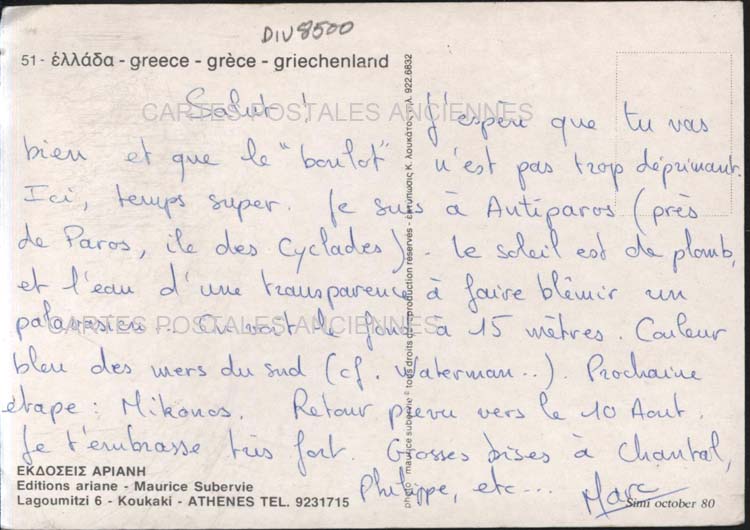 DIV8500
51 - ἑλλάδα - greece - grèce - griechenland
CARTES POSTALES ANCIENNES
Salut !
J'espère que tu vas
bien et que le "boulot" n'est pas trop déprimant.
Ici, temps super. Je suis à Antiparos (près
de Paros, ile des Cyclades). Le soleil est de plomb,
et l'eau d'une transparence à faire blêmir un
palavasien... On voit le fond à 15 mètres. Couleur
CARTES POSTALES ANCIENNES
bleu des mers du sud (cf. Waterman...). Prochaine
étape : Mikonos. Retour prévu vers le 10 Aout.
Je t'embrasse très fort. Grosses bises à Chantal,
Philippe, etc... Marc
ΕΚΔΟΣΕΙΣ ΑΡΙΑΝΗ
Editions ariane - Maurice Subervie
Lagoumitzi 6 - Koukaki - ATHENES TEL. 9231715
Simi october 80
photo maurice subervie © tous droits de reproduction réservés - ἐκτύπωσις Κ. λουκάτος τηλ. 922.6832